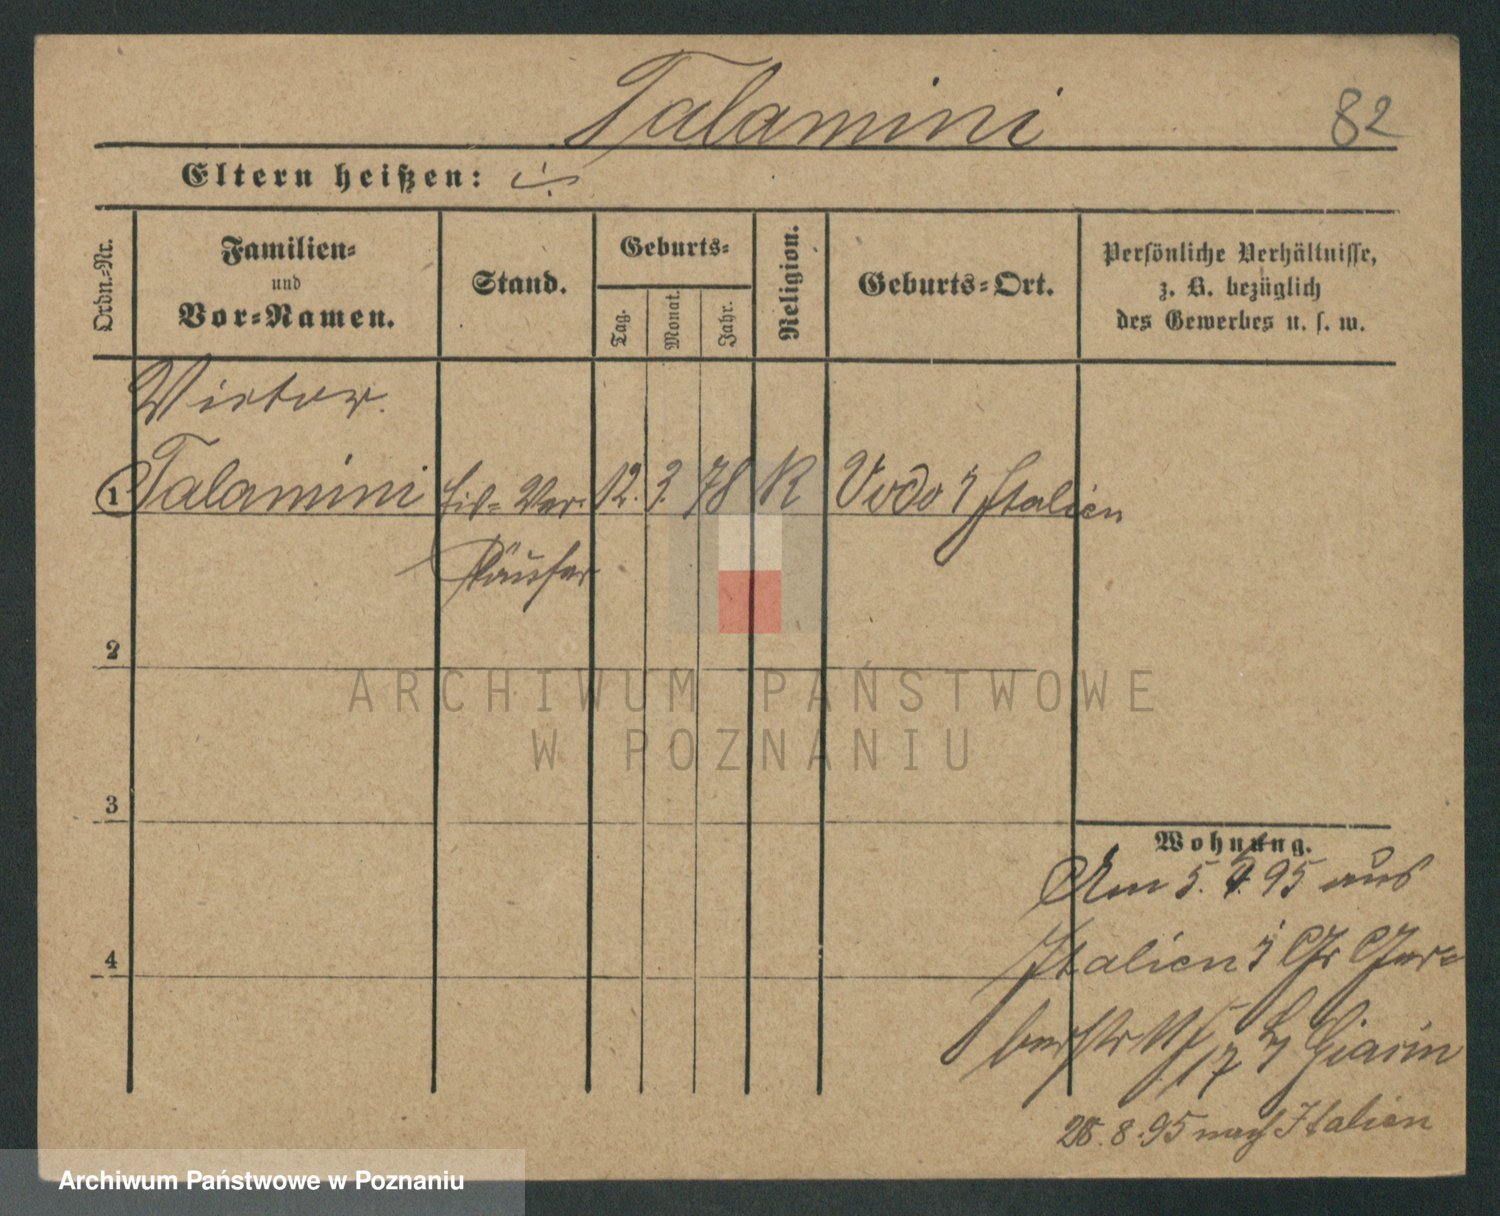 Talamini
82
Eltern heißen:
Ordn.-Nr.
Familien-
und
Vor-Namen.
Stand.
Geburts-
Tag.
Monat.
Jahr.
Religion.
Geburts-Ort.
Persönliche Verhältnisse,
z. B. bezüglich
des Gewerbes u. s. w.
Victor
1 Talamini Eis-Ver- 12. 3. 78 K Vodo i Italien
käufer
2
3
4
ARCHIWUM PAŃSTWOWE
W POZNANIU
Wohnung.
Am 5. 4. 95 aus
Italien i Gr Ger-
berstr N 17 b/ Giacin
28. 8. 95 nach Italien
Archiwum Państwowe w Poznaniu